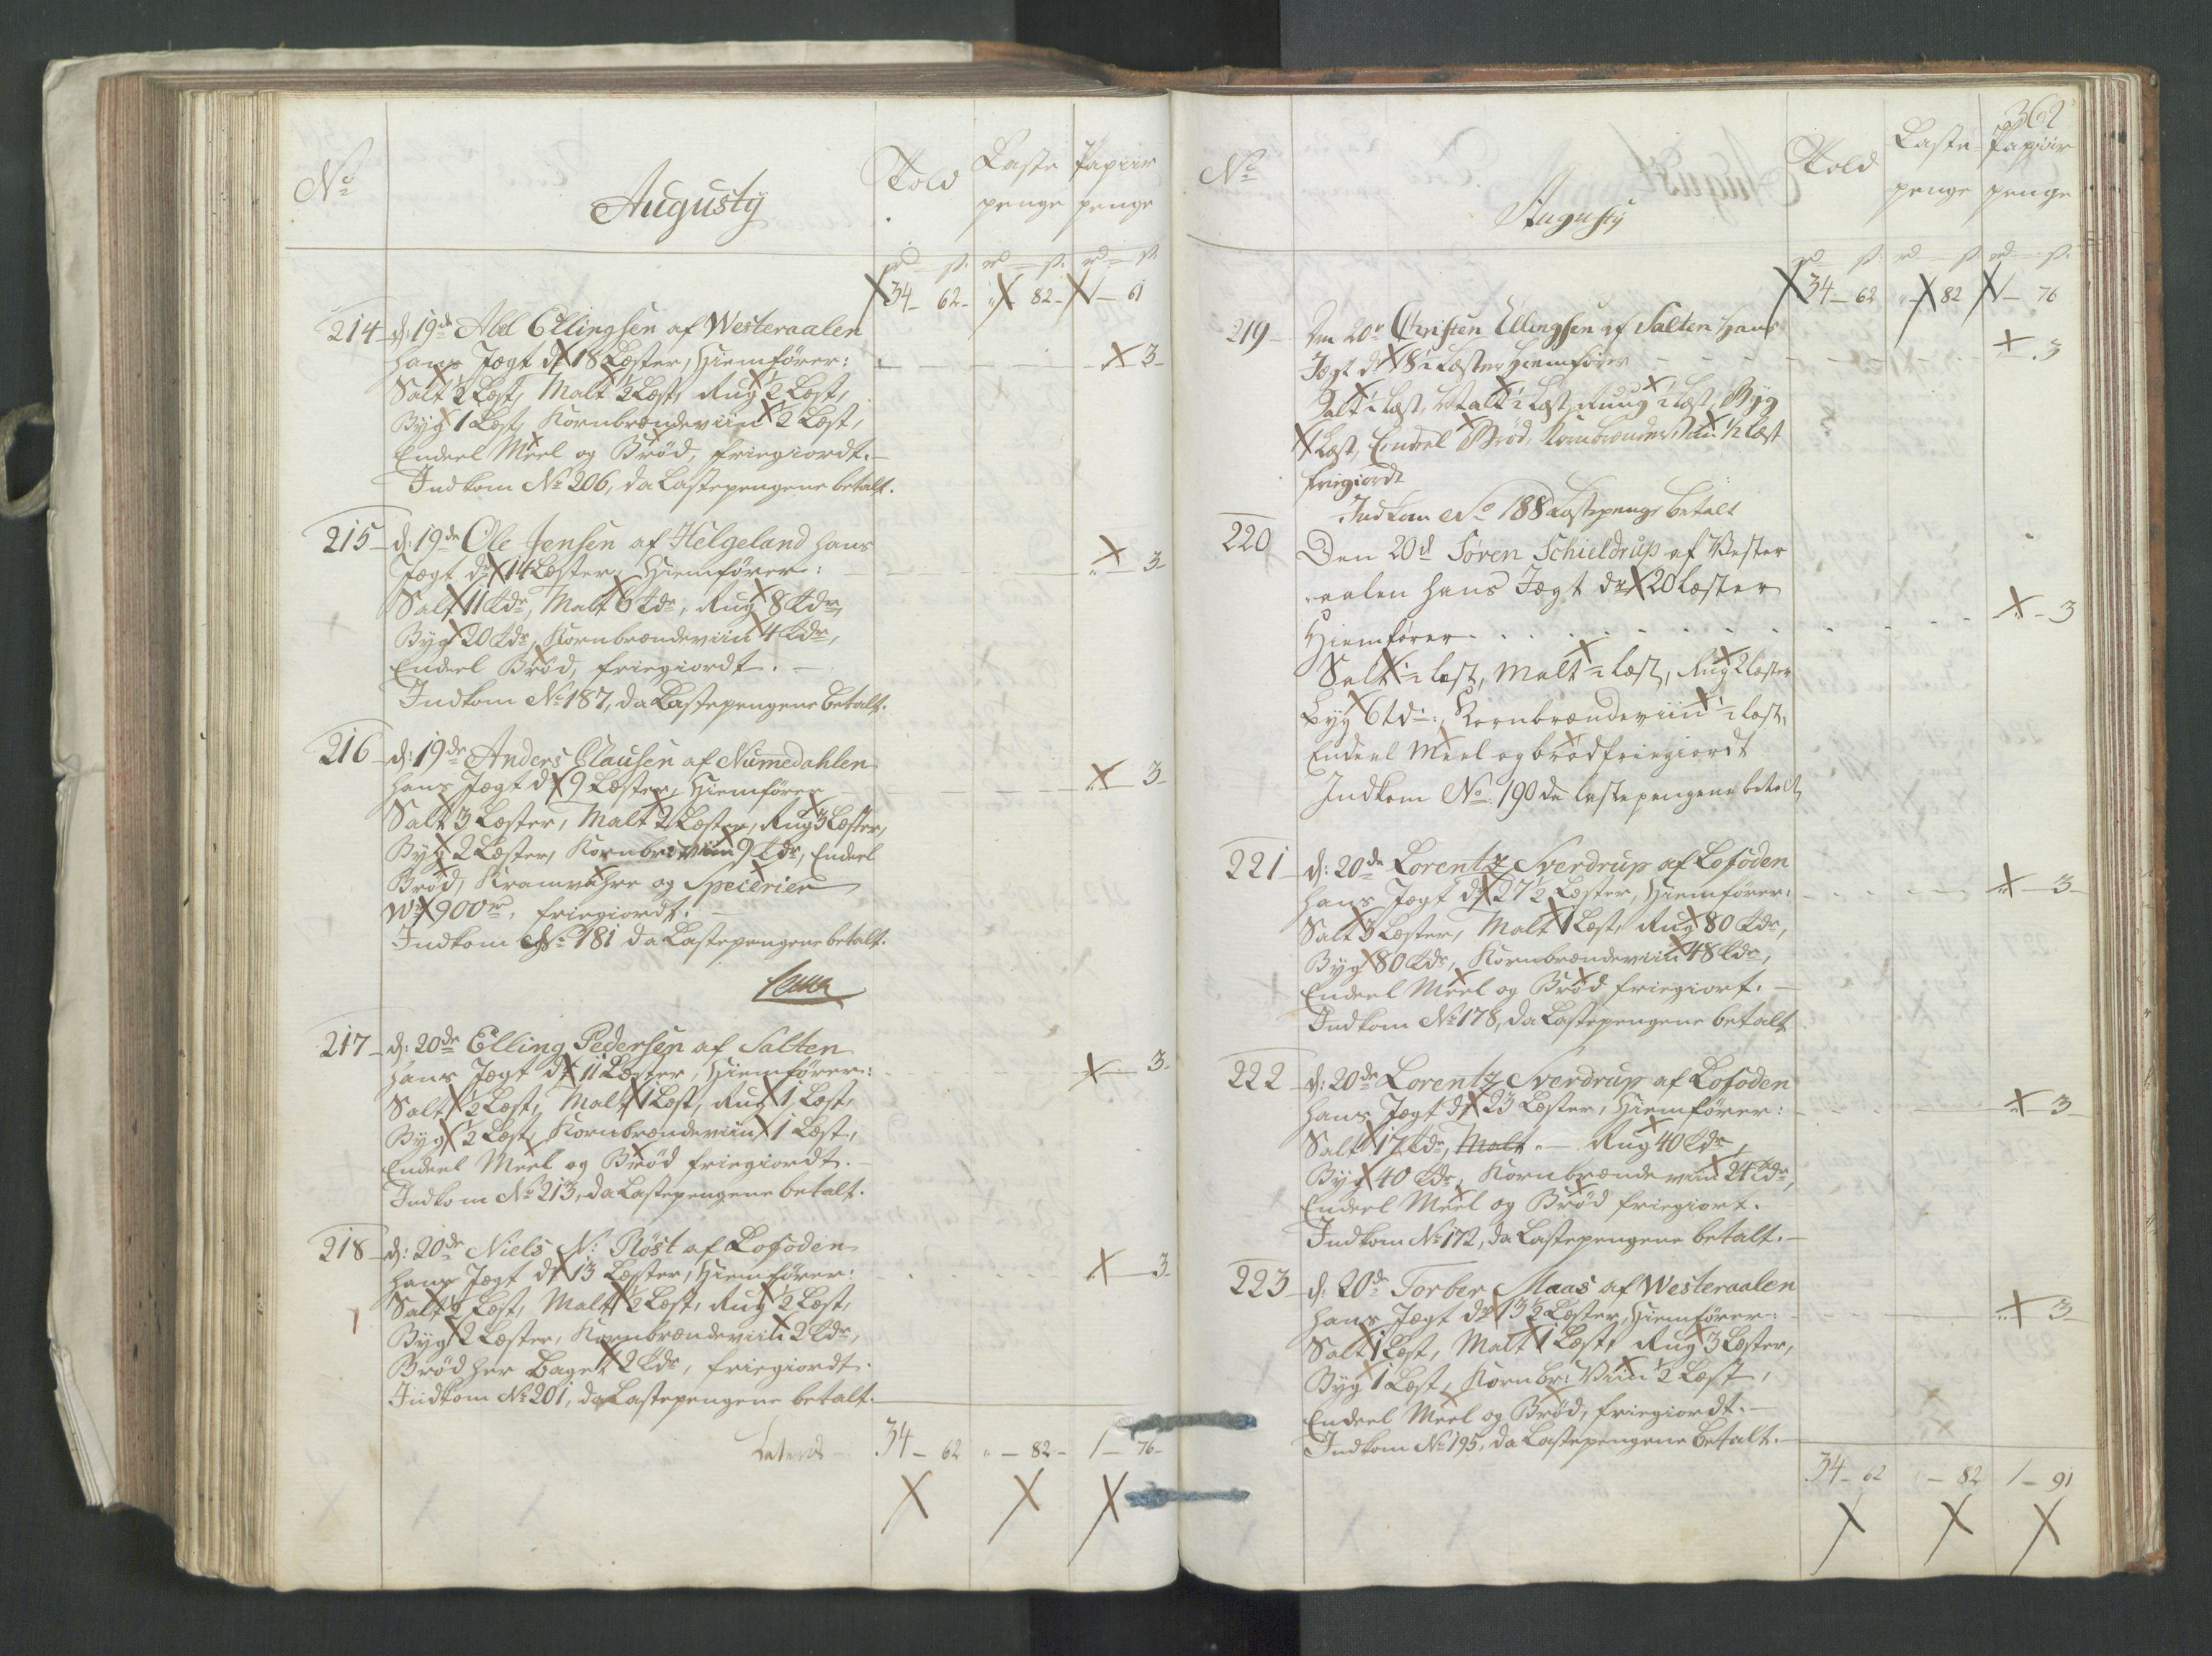 No
Augusty
Told
Laste penge
Papiir penge
rd - s. rd - s. rd - s.
34 - 62 - " - 82 - 1 - 61
214 - d: 19de Abel Ellingsen af Westeraalen
hans Jægt dr 18 Læster, Hiemfører: " - 3 -
Salt ½ Læst, Malt ½ Læst, Rug ½ Læst,
Byg 1 Læst, Kornbrændeviin ½ Læst,
Endeel Meel og Brød, friegiordt. -
Indkom No 206, da Lastepengene betalt.
215 - d: 19de Ole Jensen af Helgeland hans
Jægt dr 14 Læster, Hiemfører: " - 3 -
Salt 11 tdr, Malt 6 tdr, Rug 8 tdr,
Byg 20 tdr, Kornbrændeviin 4 tdr,
Endeel Brød, friegiordt. -
Indkom No 187, da Lastepengene betalt.
216 - d: 19de Anders Clausen af Numedahlen
hans Jægt dr 9 Læster, Hiemfører " - 3 -
Salt 3 Læster, Malt 2 Læster, Rug 3 Læster,
Byg 2 Læster, Kornbr:viin 9 tdr, Endeel
Brød, Kramvahre og Specerier
900 friegiordt. -
Indkom No 181 da Lastepengene betalt.
217 - d: 20de Elling Pedersen af Salten
hans Jægt dr 11 Læster, Hiemfører: " - 3 -
Salt ½ Læst, Malt 1 Læst, Rug 1 Læst,
Byg ½ Læst, Kornbrændeviin 1 Læst,
Endeel Meel og Brød friegiordt. -
Indkom No 213, da Lastepengene betalt.
218 - d: 20de Niels N: Röst af Lofoden
hans Jægt dr 13 Læster, Hiemfører: " - 3 -
Salt ½ Læst, Malt ½ Læst, Rug ½ Læst,
Byg 2 Læster, Kornbrændeviin 2 tdr,
Brød her Baget 2 tdr, friegiordt.
Indkom No 201, da Lastepengene betalt.
Laterus 34 - 62 " - 82 - 1 - 76 -
362
No
Augusty
Told
Laste penge
Papiir penge
rd s. rd s. rd - s.
34 - 62 " - 82 1 - 76
219 - Den 20de Christen Ellingsen af Salten hans
Jægt dr 8½ Læster Hiemfører " - 3
Salt ½ Læst, Malt ½ Læst, Ruug ½ Læst, Byg
1 Læst, Endeel Brød, Kornbrændeviin ½ Læst
friegiordt
Indkom No 188 Lastepenge betalt
220 Den 20de Søren Schieldrup af Vester
aalen hans Jægt dr 20 læster
Hiemfører . . . " - 3
Salt ½ læst, Malt ½ læst, Rug 2 læster
Byg 6 tdr:, Kornbrændeviin ½ læst,
Endeel Meel og brød friegiordt
Indkom No. 190 da lastepengene betalt
221 - d: 20de Lorentz Sverdrup af Lofoden
hans Jægt dr 27½ Læster, Hiemfører: " - 3 -
Salt 3 Læster, Malt 1 Læst, Rug 80 tdr,
Byg 80 tdr, Kornbrændeviin 48 tdr,
Endeel Meel og Brød friegiort. -
Indkom No 178, da Lastepengene betalt
222 - d: 20de Lorentz Sverdrup af Lofoden
hans Jægt dr 23 Læster, Hiemfører: " - 3 -
Salt 17 tdr, Malt. - Rug 40 tdr,
Byg 40 tdr, Kornbrændeviin 24 tdr,
Endeel Meel og Brød friegiort.
Indkom No 172, da Lastepengene betalt. -
223 - d: 20de Torber Maas af Westeraalen
hans Jægt dr 13½ Læster, Hiemfører: " - 3 -
Salt 1 Læst, Malt 1 Læst, Rug 3 Læster,
Byg 1 Læst, Kornbr: Viin ½ Læst,
Endeel Meel og Brød, friegiordt. -
Indkom No 195, da Lastepengene betalt. -
34 - 62 - 82 1 - 91